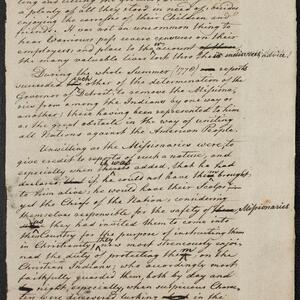 a plenty of all they stood in need of; besides
enjoying the caresses of their Children and
friends. It was not an uncommon thing to
hear Warriors pass severe censures on their
employers and place to their account
the many valuable lives lost thro' their advice!
During the whole Summer (1778) reports
succeeded each other of the determination of the
Governor of Detroit, to remove the Missiona-
ries from among the Indians by one way or
another; these having been represented to him
as the great obstacle in the way of uniting
all Nations against the American People.
Unwilling as the Missionaries were, to
give credit to reports of such a nature; and
especially when it was added, that he had
declared: if he could not have them brought
to him alive; he would have their Scalps,
yet the Chief of the Nation; considering
themselves responsible for the safety of Missionaries
they had invited them to come into
their Country for the purpose of instructing them
in Christianity; they now most strenuously enjoi-
ned the duty of protecting them on the
Christian Indians; who accordingly most
faithfully guarded them, both by day and
night, especially, when suspicious Charac-
ters were discovered lurking in the